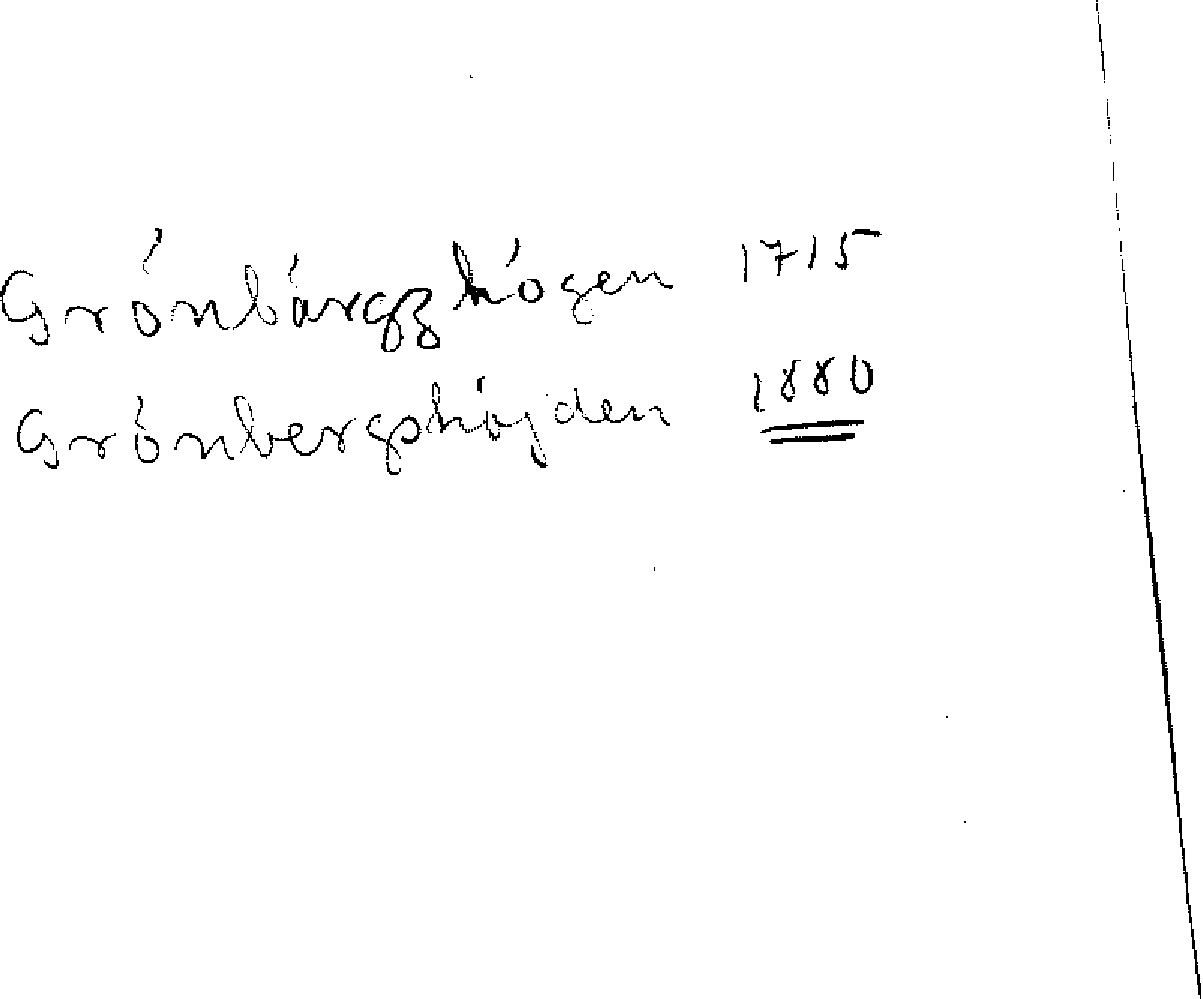 Grónbárgzhógen 1715
Grónbergshójden 1880